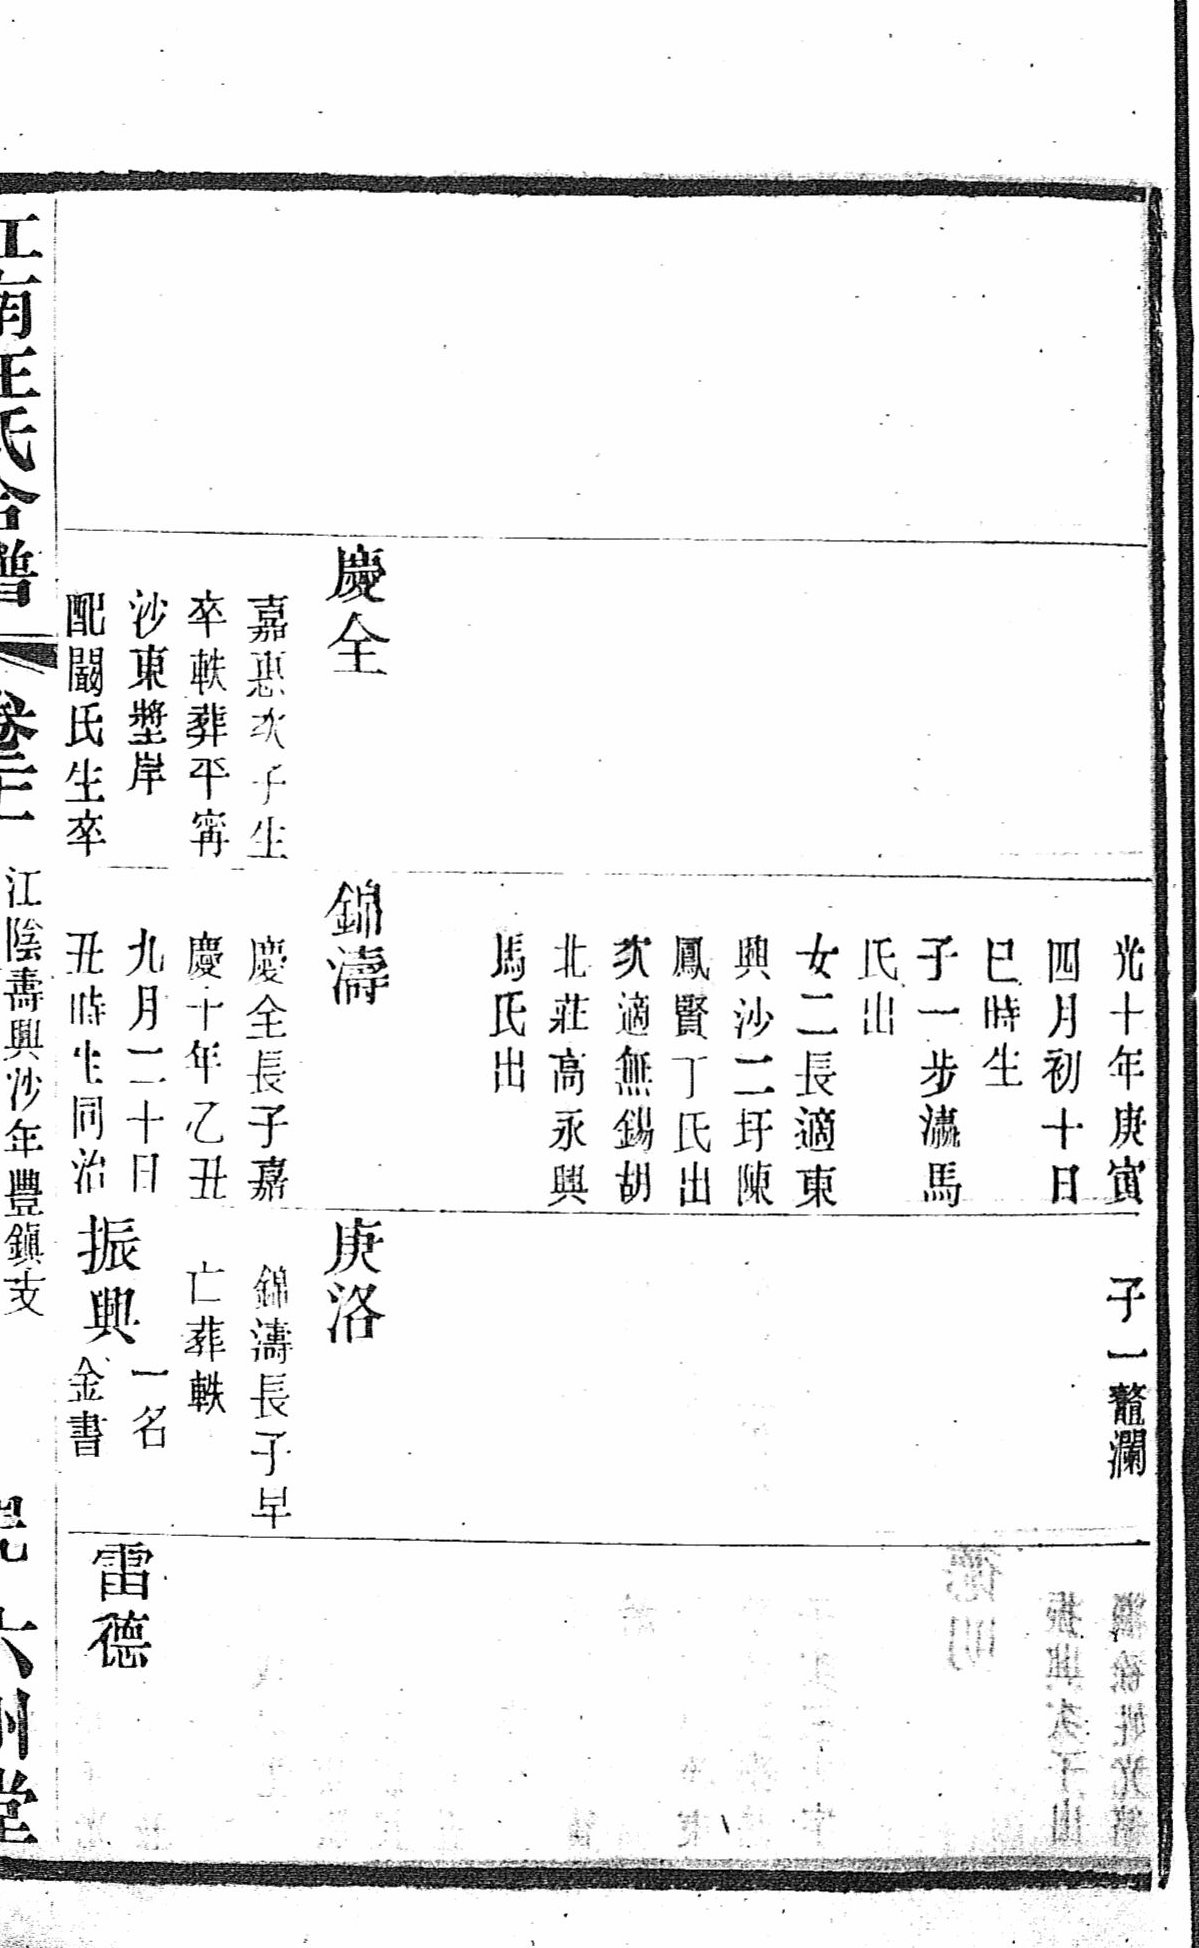 慶全
嘉惪次子生
卒軼葬平甯
沙東壟岸
配闞氏生卒
光十年庚寅
四月初十日
巳時生
子一步瀛馬
氏出
女二長適東
興沙二圩陳
鳳賢丁氏出
次適無錫胡
北莊高永興
馬氏出
錦濤
慶全長子嘉
慶十年乙丑
九月二十日
丑時生同治
子一鼇瀾
庚洛
錦濤長子早
亡葬軼
振興
一名
金書
雷德
江南汪氏合譜
江陰壽興沙年豐鎮支
六州堂